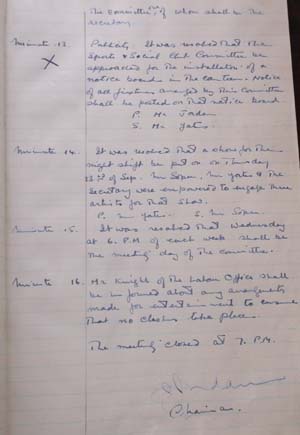 the committee, of whom shall be the
secretary.
Minute 13. Publicity. It was resolved that the
Sports & Social Club Committee be
approached for the installation of a
notice board in the canteen. Notice
of all fixtures arranged by this Committee
shall be posted on that notice board.
P. Mr Jordan
S. Mr Yates.
Minute 14. It was resolved that a show for the
night shift be put on on Thursday
13th of Sep. Mr Soper. Mr Yates & the
Secretary were empowered to engage three
artists for that Show.
P. Mr Yates. S. Mr Soper.
Minute 15. It was resolved that Wednesday
at 6. P.M of each week shall be
the meeting day of the Committee.
Minute 16. Mr Knight of the Labour Office shall
be informed about any arrangements
made for entertainment to ensure
that no clashes take place.
The meeting closed at 7. P.M.
Chairman.